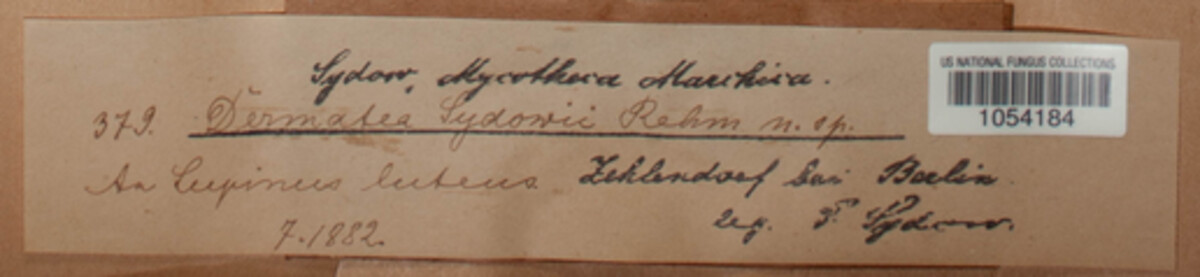 Sydow, Mycotheca Marchica.
US NATIONAL FUNGUS COLLECTIONS
1054184
379. Dermatea Sydowii Rehm n. sp.
An Lupinus luteus Zehlendorf bei Berlin.
7.1882. leg. P. Sydow.